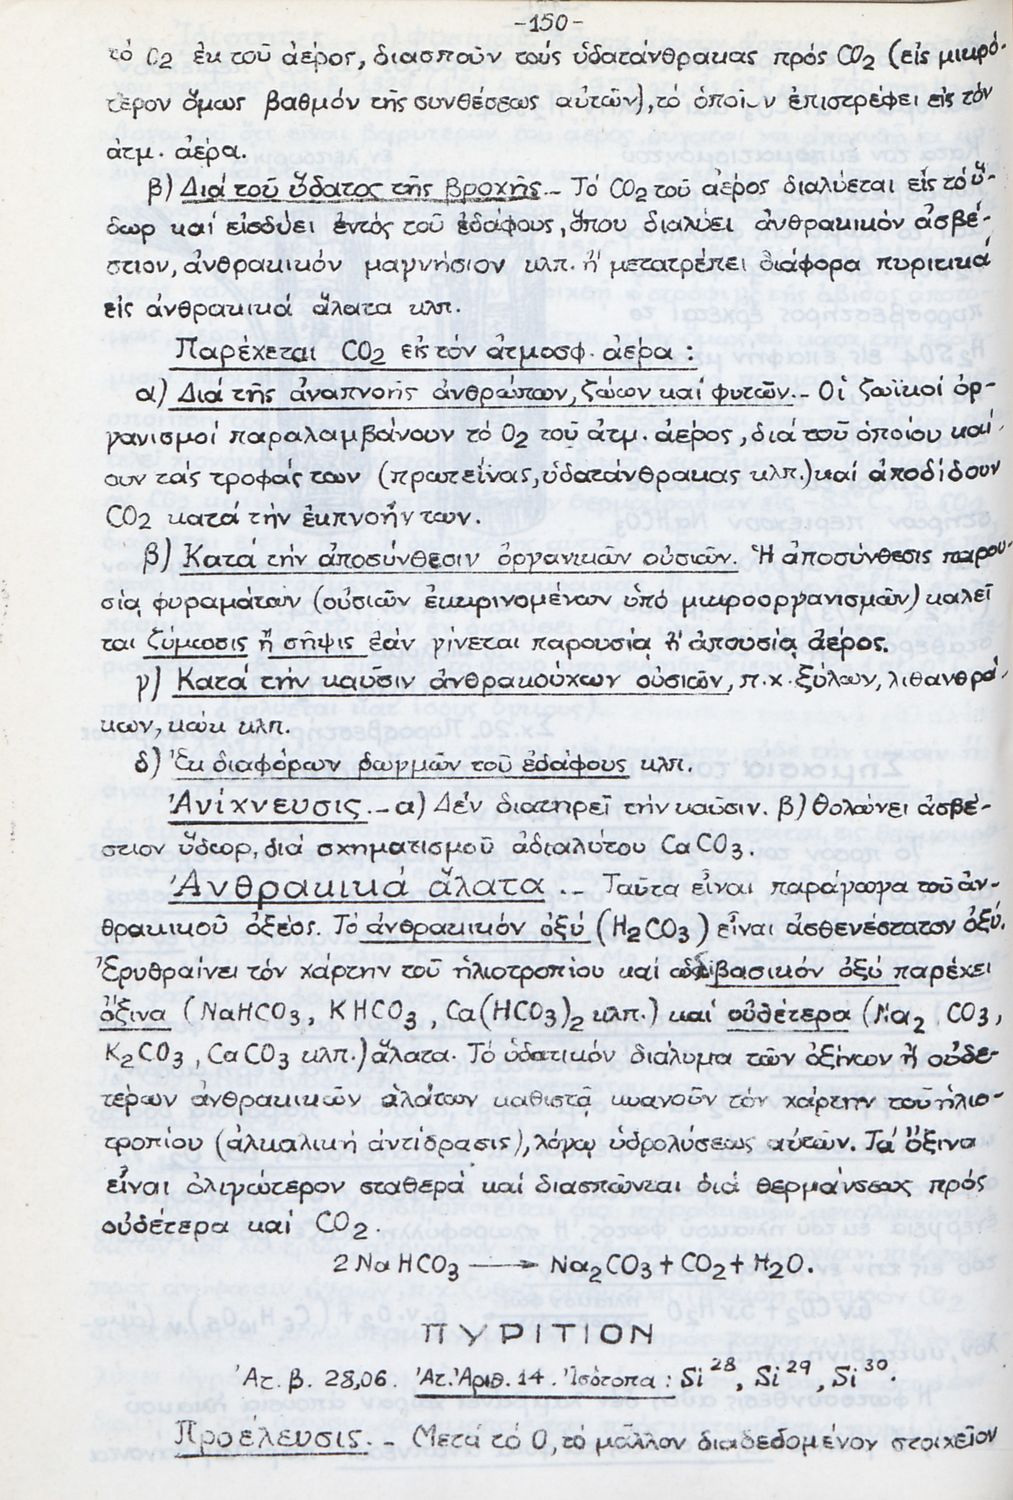 -150-
τό O2 ἐκ τοῦ ἀέρος, διασποῦν τούς ὑδατάνθρακας πρός CO2 (εἰς μικρό-
τερον ὅμως βαθμόν τῆς συνθέσεως αὐτῶν), τό ὁποῖον ἐπιστρέφει εἰς τόν
ἀτμ. ἀέρα.
β) Διά τοῦ ὕδατος τῆς βροχῆς.- Τό CO2 τοῦ ἀέρος διαλύεται εἰς τό ὕ-
δωρ καί εἰσδύει ἐντός τοῦ ἐδάφους, ὅπου διαλύει ἀνθρακικόν ἀσβέ-
στιον, ἀνθρακικόν μαγνήσιον κλπ. ἤ μετατρέπει διάφορα πυριτικά
εἰς ἀνθρακικά ἅλατα κλπ.
Παρέχεται CO2 εἰς τόν ἀτμοσφ. ἀέρα.:
α) Διά τῆς ἀναπνοῆς ἀνθρώπων, ζώων καί φυτῶν.- Οἱ ζωϊκοί ὀρ-
γανισμοί παραλαμβάνουν τό O2 τοῦ ἀτμ. ἀέρος, διά τοῦ ὁποίου καί-
ουν τάς τροφάς των (πρωτεΐνας, ὑδατάνθρακας κλπ.) καί ἀποδίδουν
CO2 κατά τήν ἐκπνοήν των.
β) Κατά τήν ἀποσύνθεσιν ὀργανικῶν οὐσιῶν. Ἡ ἀποσύνθεσις παρου-
σίᾳ φυραμάτων (οὐσιῶν ἐκκρινομένων ὑπό μικροοργανισμῶν) καλεῖ
ται ζύμωσις ἤ σῆψις ἐάν γίνεται παρουσίᾳ ἤ ἀπουσίᾳ ἀέρος.
γ) Κατά τήν καῦσιν ἀνθρακούχων οὐσιῶν, π.χ. ξύλων, λιθανθρά-
κων, κώκ κλπ.
δ) Ἐκ διαφόρων ρωγμῶν τοῦ ἐδάφους κλπ.
Ἀνίχνευσις.- α) Δέν διατηρεῖ τήν καῦσιν. β) Θολώνει ἀσβέ-
στιον ὕδωρ, διά σχηματισμοῦ ἀδιαλύτου CaCO3.
Ἀνθρακικά ἅλατα.- Ταῦτα εἶναι παράγωγα τοῦ ἀν-
θρακικοῦ ὀξέος. Τό ἀνθρακικόν ὀξύ (H2CO3) εἶναι ἀσθενέστατον ὀξύ.
Ἐρυθραίνει τόν χάρτην τοῦ ἡλιοτροπίου καί ὡς διβασικόν ὀξύ παρέχει
ὄξινα (NaHCO3, KHCO3, Ca(HCO3)2 κλπ.) καί οὐδέτερα (Na2 CO3,
K2CO3, CaCO3 κλπ.) ἅλατα. Τό ὑδατικόν διάλυμα τῶν ὀξίνων ἤ οὐδε-
τέρων ἀνθρακικῶν ἁλάτων καθιστᾷ κυανοῦν τόν χάρτην τοῦ ἡλιο-
τροπίου (ἀλκαλική ἀντίδρασις), λόγῳ ὑδρολύσεως αὐτῶν. Τά ὄξινα
εἶναι ὀλιγώτερον σταθερά καί διασπῶνται διά θερμάνσεως πρός
οὐδέτερα καί CO2.
2NaHCO3 → Na2CO3 + CO2 + H2O.
ΠΥΡΙΤΙΟΝ
Ἀτ. β. 28,06. Ἀτ. Ἀριθ. 14. Ἰσότοπα: Si28, Si29, Si30.
Προέλευσις.- Μετά τό O, τό μᾶλλον διαδεδομένον στοιχεῖον